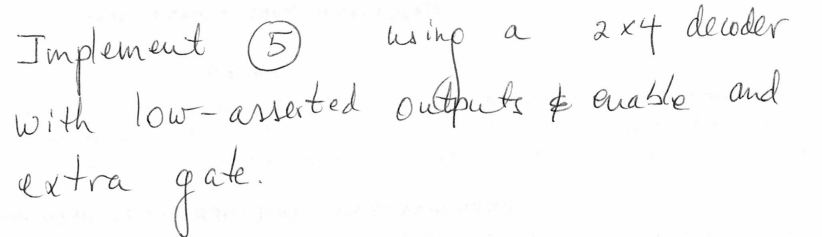 Implement ⑤ using a 2x4 decoder
with low-asserted outputs & enable and
extra gate.